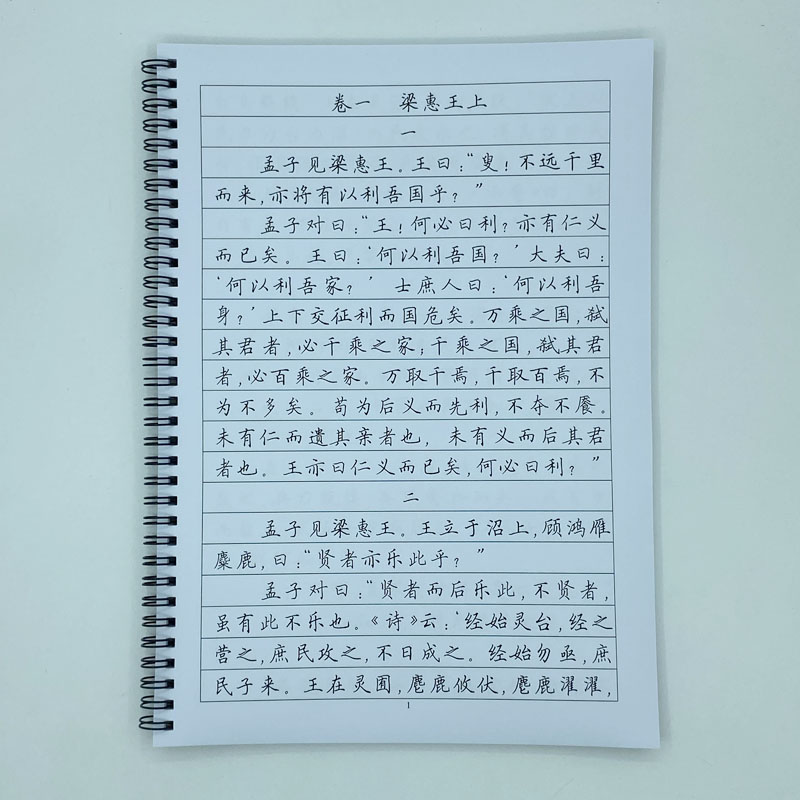 卷一 梁惠王上
一
孟子见梁惠王。王曰：“叟！不远千里
而来，亦将有以利吾国乎？”
孟子对曰：“王！何必曰利？亦有仁义
而已矣。王曰：‘何以利吾国？’大夫曰：
‘何以利吾家？’士庶人曰：‘何以利吾
身？’上下交征利而国危矣。万乘之国，弑
其君者，必千乘之家；千乘之国，弑其君
者，必百乘之家。万取千焉，千取百焉，不
为不多矣。苟为后义而先利，不夺不餍。
未有仁而遗其亲者也，未有义而后其君
者也。王亦曰仁义而已矣，何必曰利？”
二
孟子见梁惠王。王立于沼上，顾鸿雁
麋鹿，曰：“贤者亦乐此乎？”
孟子对曰：“贤者而后乐此，不贤者，
虽有此不乐也。《诗》云：‘经始灵台，经之
营之，庶民攻之，不日成之。经始勿亟，庶
民子来。王在灵囿，麀鹿攸伏，麀鹿濯濯，
1